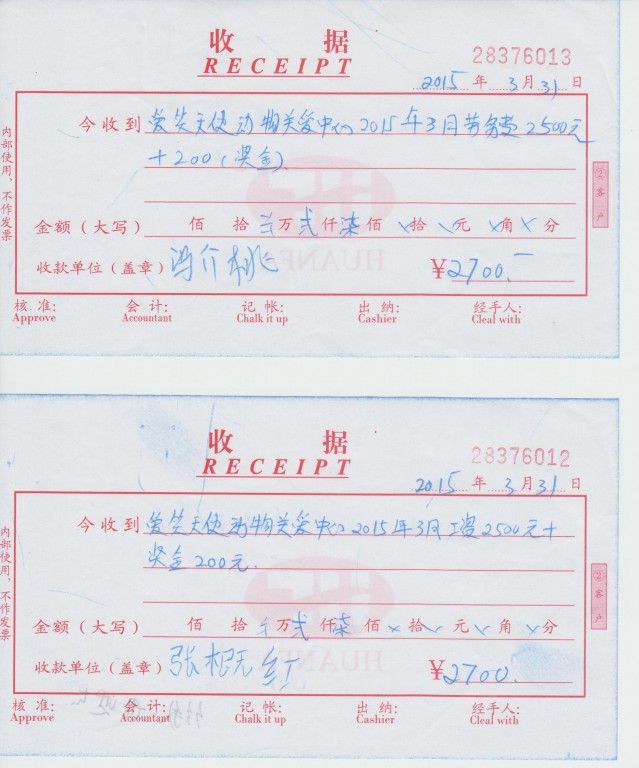 收 据
RECEIPT
28376013
2015 年 3 月 31 日
今收到 爱笑天使动物关爱中心 2015年3月劳务费2500元
+200(奖金)
金额(大写) 佰 拾 万 贰 仟 柒 佰 × 拾 × 元 × 角 × 分
收款单位(盖章) 冯介桃
¥2700.-
核准: 会计: 记帐: 出纳: 经手人:
Approve Accountant Chalk it up Cashier Cleal with
内部使用,不作发票
②客户
HUANF
收 据
RECEIPT
28376012
2015 年 3 月 31 日
今收到 爱笑天使动物关爱中心 2015年3月工资2500元+
奖金200元.
金额(大写) 佰 拾 万 贰 仟 柒 佰 × 拾 × 元 × 角 × 分
收款单位(盖章) 张根红
¥2700.
核准: 会计: 记帐: 出纳: 经手人:
Approve Accountant Chalk it up Cashier Cleal with
内部使用,不作发票
②客户
HUANF